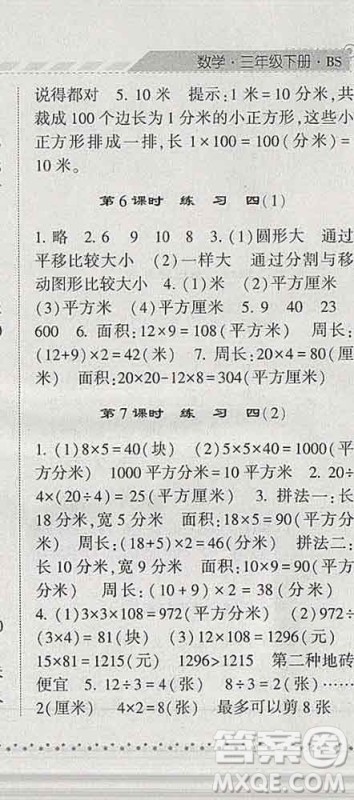 数学·三年级下册·BS
说得都对 5. 10 米 提示:1 米=10 分米,共
裁成 100 个边长为 1 分米的小正方形,这些小
正方形排成一排,长 1×100=100(分米)=
10 米。
第 6 课时 练 习 四(1)
1. 略 2. 6 9 10 8 3. (1)圆形大 通过
平移比较大小 (2)一样大 通过分割与移
动图形比较大小 4. (1)平方厘米 (2)米
(3)平方米 (4)平方厘米 5. 9 40 23
600 6. 面积:12×9=108(平方米) 周长:
(12+9)×2=42(米) 7. 周长:20×4=80(厘
米) 面积:20×20-12×8=304(平方厘米)
第 7 课时 练 习 四(2)
1. (1)8×5=40(块) (2)5×5×40=1000(平
方分米) 1000 平方分米=10 平方米 2. 20÷
4×(20÷4)=25(平方厘米) 3. 拼法一:长
18 分米,宽 5 分米 面积:18×5=90(平方分
米) 周长:(18+5)×2=46(分米) 拼法二:
长 10 分米,宽 9 分米 面积:10×9=90(平方
分米) 周长:(10+9)×2=38(分米)
4. (1)3×3×108=972(平方分米) (2)972÷
(3×4)=81(块) (3)12×108=1296(元)
15×81=1215(元) 1296>1215 第二种地砖
便宜 5. 12÷3=4(张) 8÷3=2(张)……
2(厘米) 4×2=8(张) 最多可以剪 8 张
答案圈
MXQE.COM